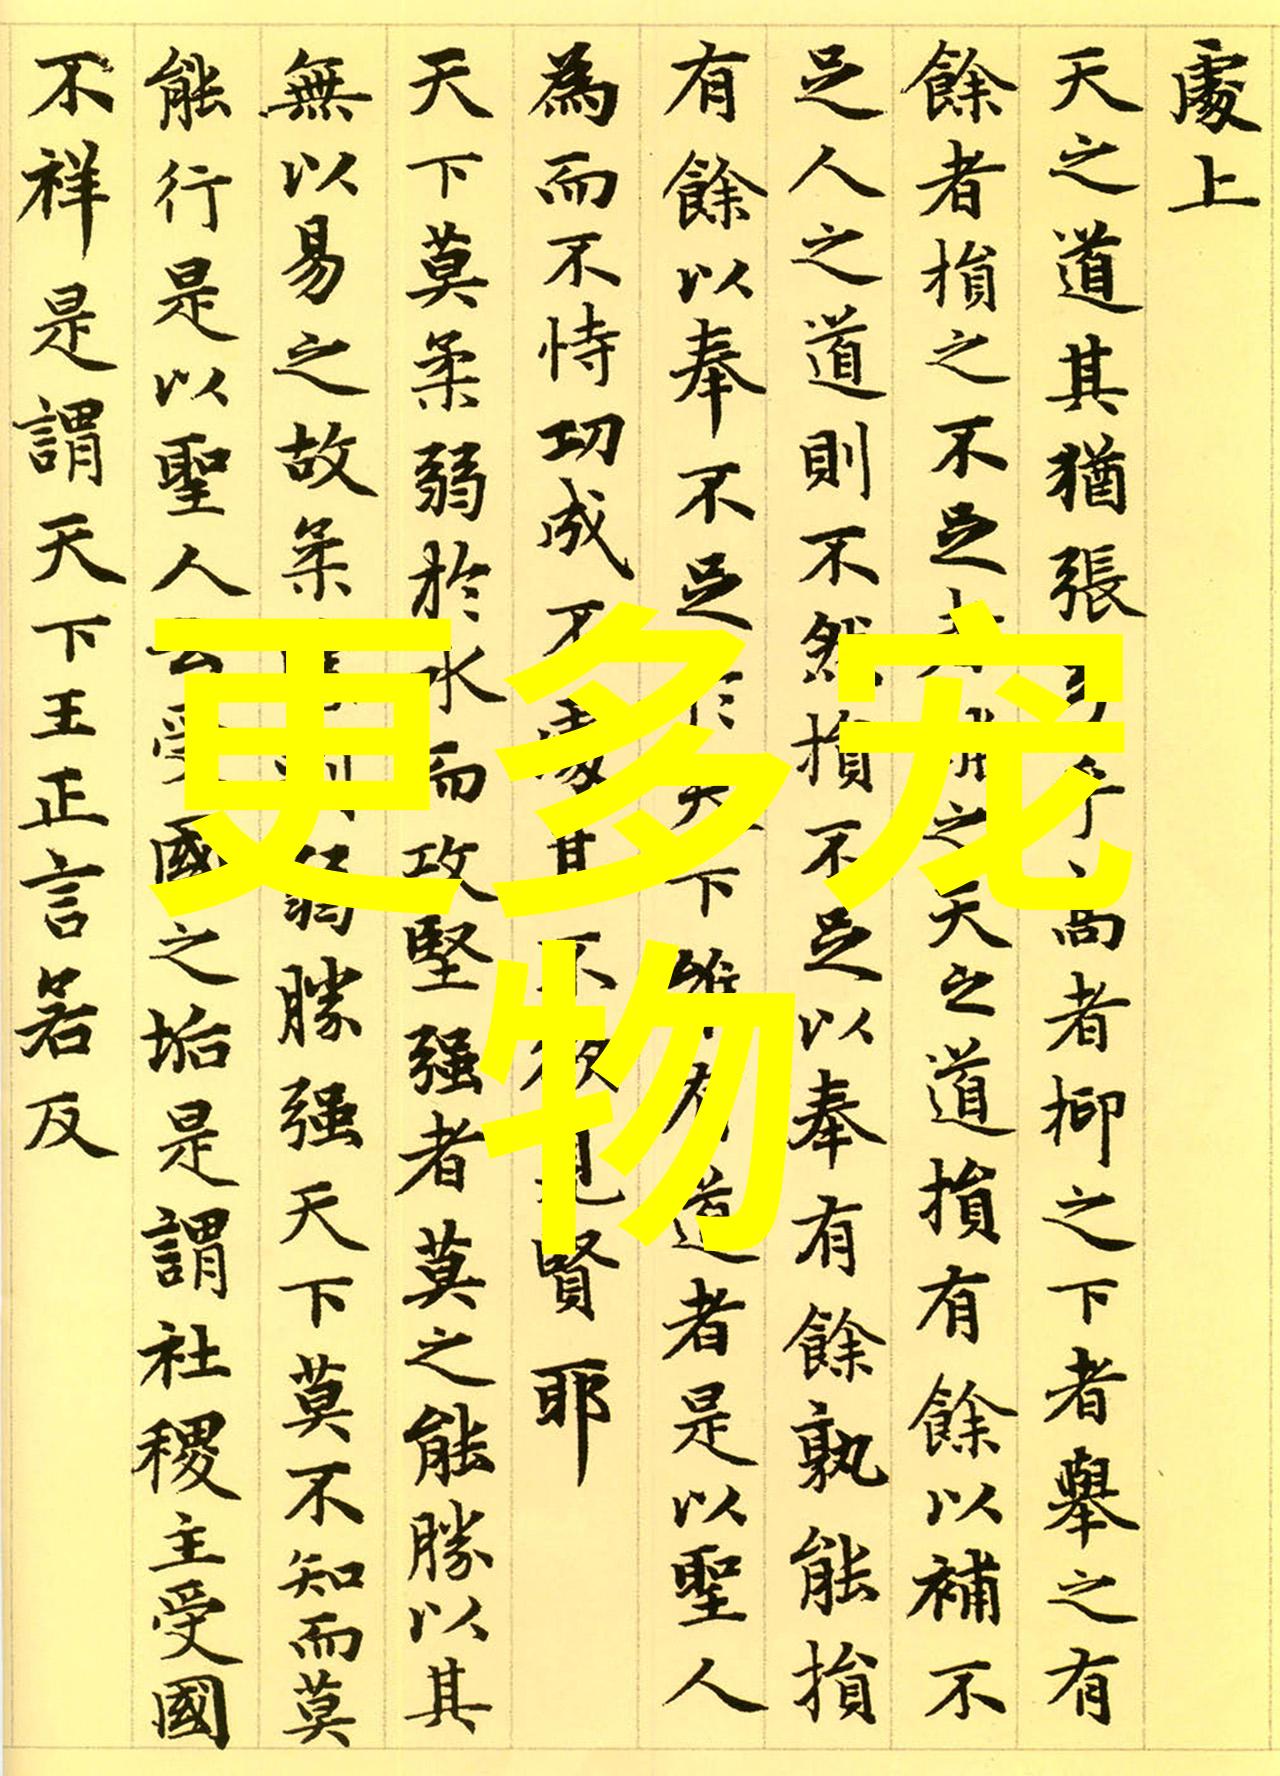 處上
天之道其猶張乎高者抑之下者舉之有
餘者損之不足者補之天之道損有餘以補不
足人之道則不然損不足以奉有餘孰能損
有餘以奉不足於天下唯有道者是以聖人
為而不恃功成不處其不欲見賢耶
天下莫柔弱於水而攻堅强者莫之能勝以其
無以易之故柔勝剛弱勝强天下莫不知而莫
能行是以聖人云受國之垢是謂社稷主受國
不祥是謂天下王正言若反
更多宠
物